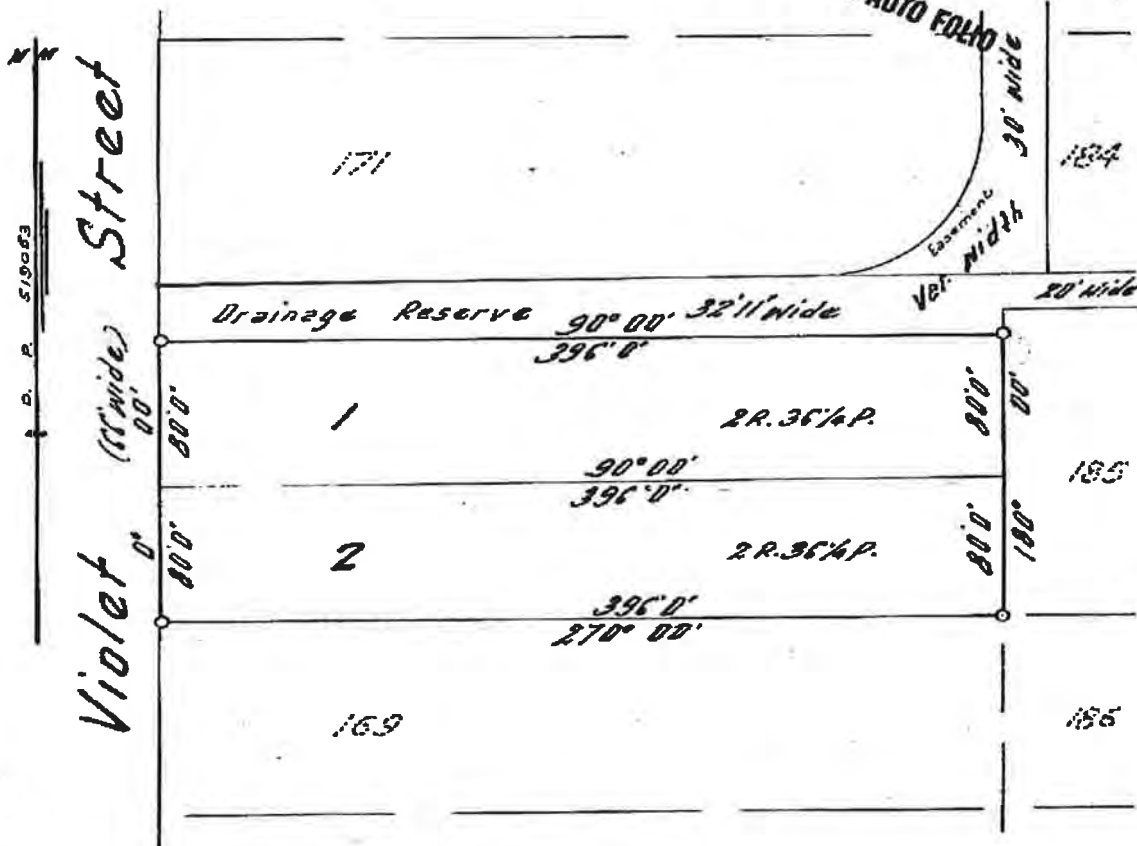 AUTO FOLIO
N M
D. P. 519063
Violet Street
(66' wide)
0° 00'
171
30' Wide
Easement
Var. Width
184
20' Wide
Drainage Reserve 32'11" Wide
90° 00'
396' 0"
80'0"
1
2R. 36¼P.
80'0"
180° 00'
185
90° 00'
396' 0"
80'0"
2
2R. 36¼P.
80'0"
396' 0"
270° 00'
169
186